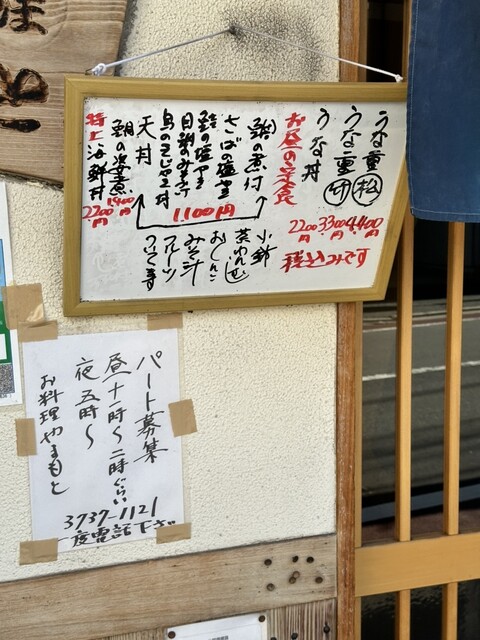 うな重 松 4,400円
うな重 竹 3300円
うな丼 2200円
税込みです
お昼の定食
の煮付
さばの塩焼
鮭の塩焼
目鯛のみそ
天丼
1100円
小鉢
茶わんむし
おしんこ
みそ汁
フルーツ
ついてます
鯛の姿煮 1400円
特上海鮮丼 2200円
パート募集
昼十一時～二時ぐらい
夜五時～
お料理やまもと
3737-1121
一度電話下さい